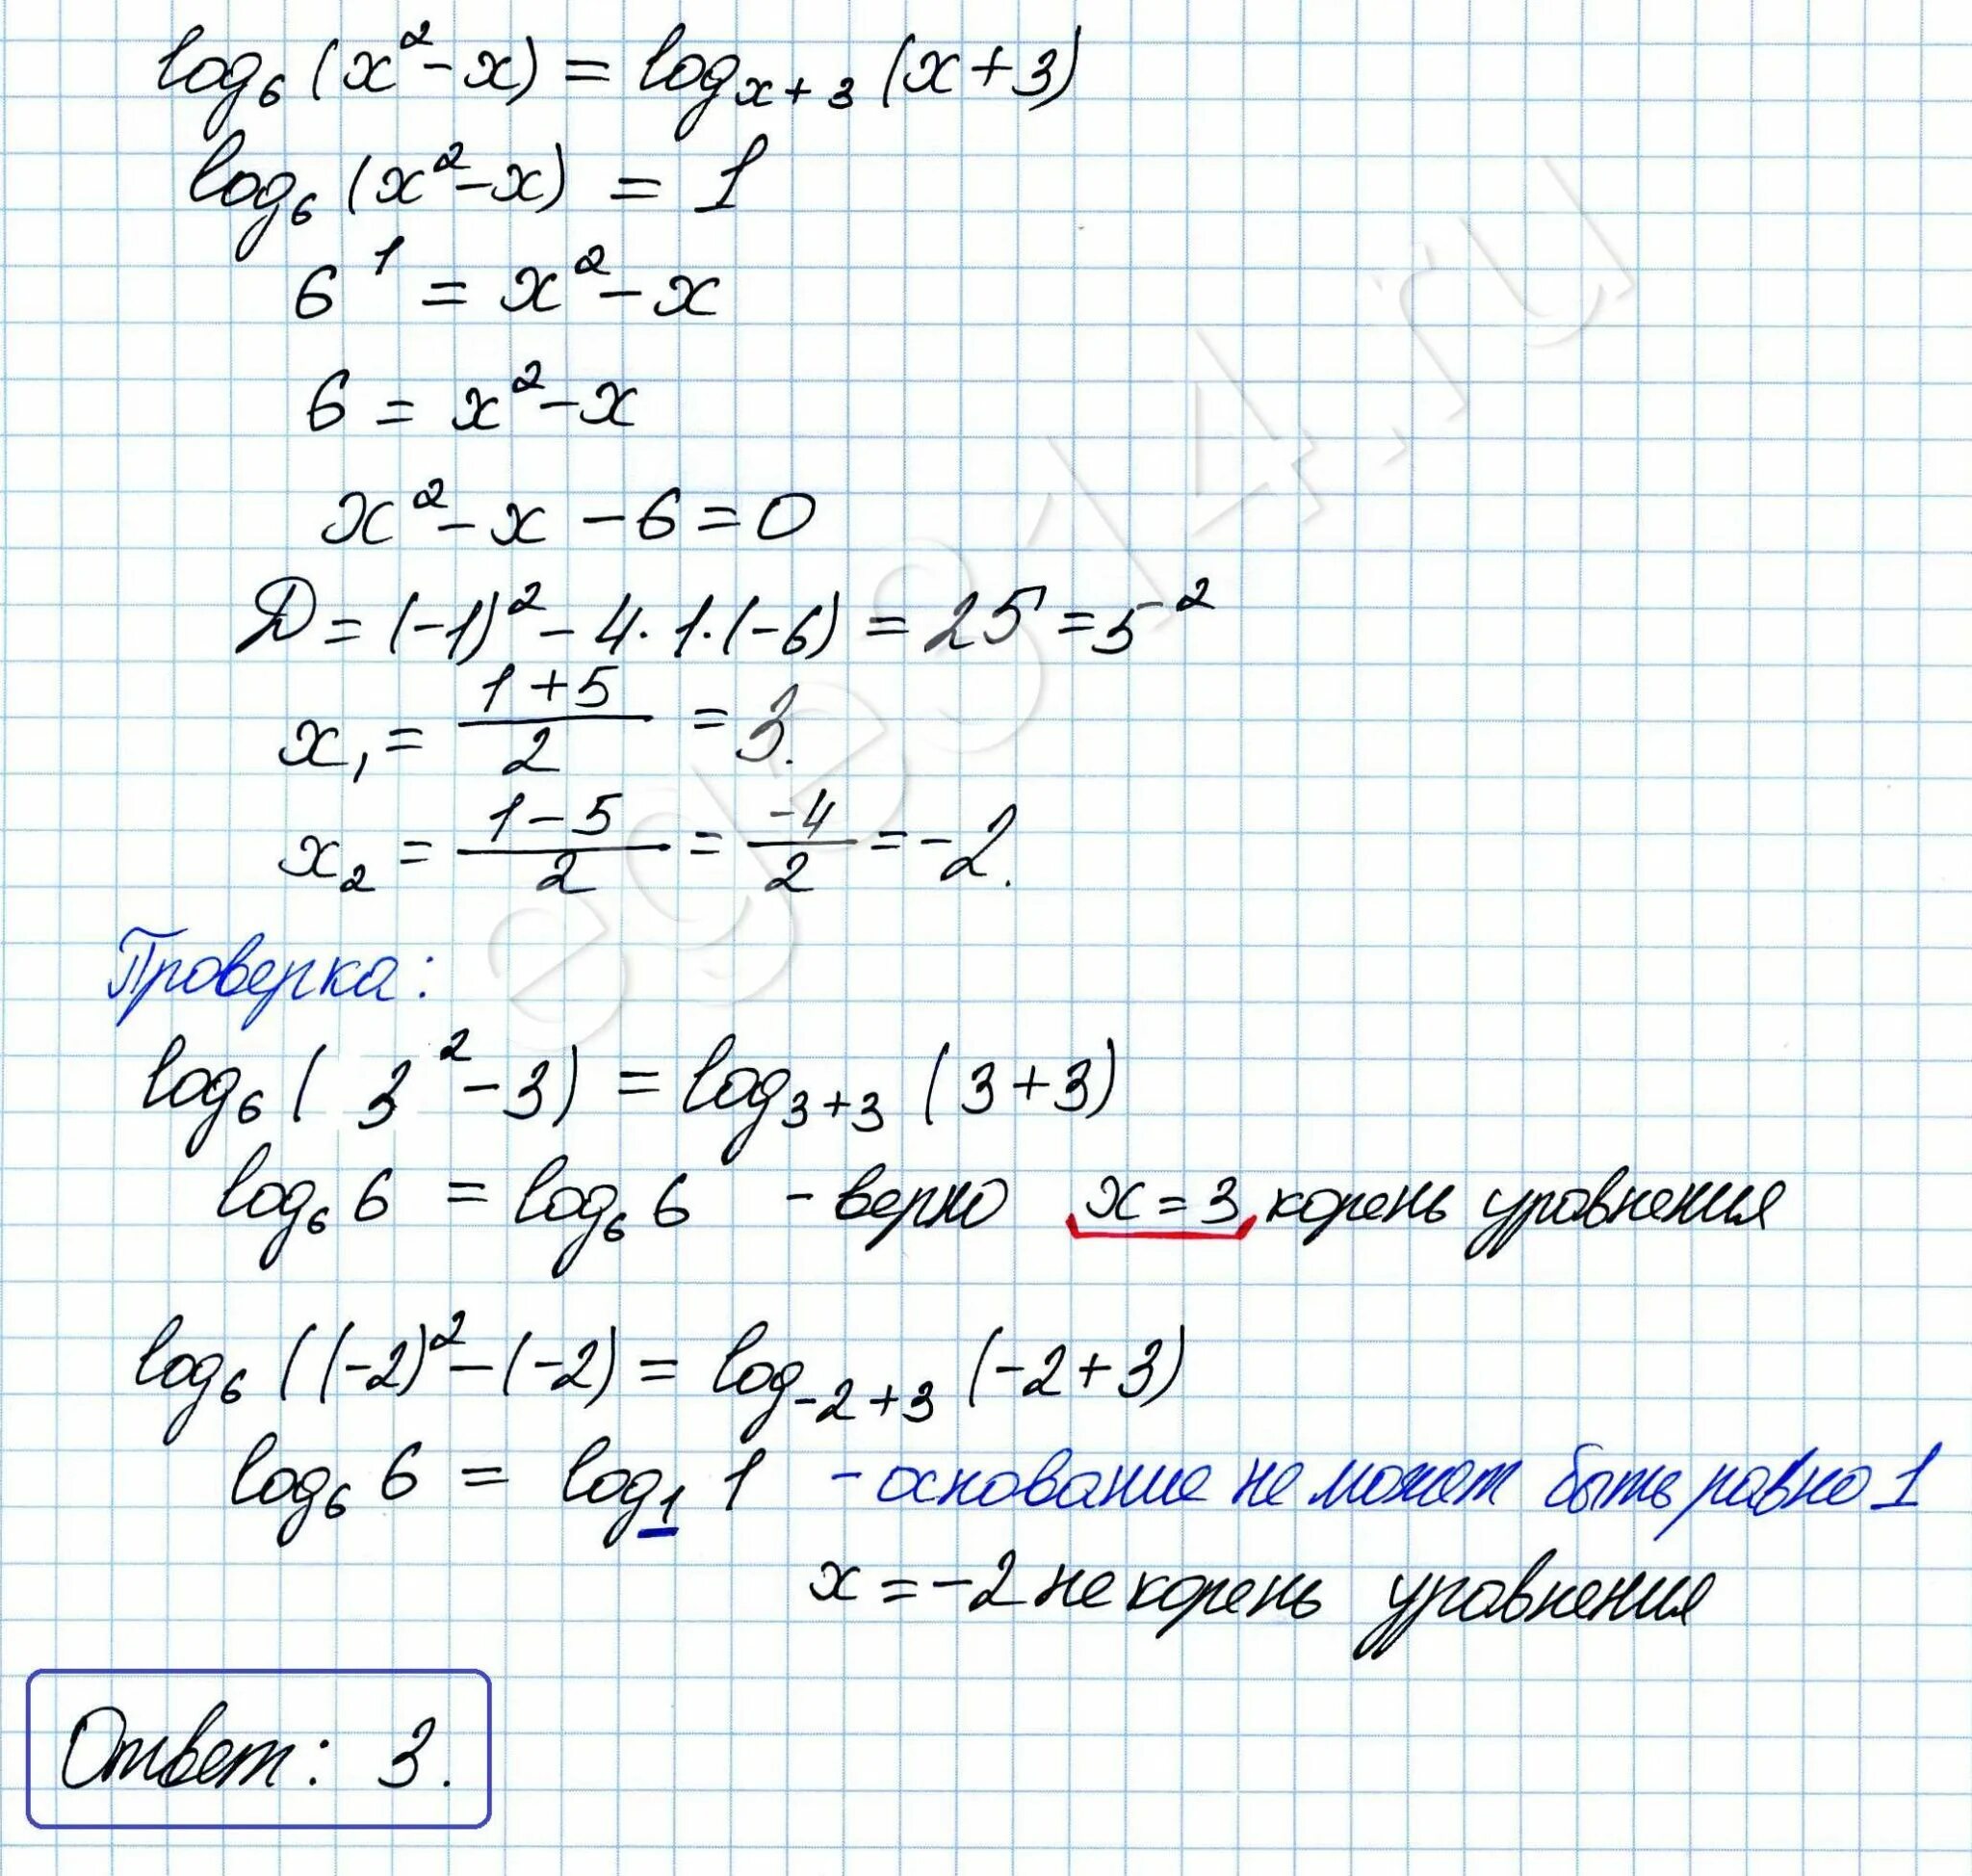 log₆(x²-x) = logₓ₊₃(x+3)
log₆(x²-x) = 1
6¹ = x²-x
6 = x²-x
x²-x-6=0
D = (-1)²-4·1·(-6) = 25 = 5²
x₁ = (1+5)/2 = 3.
x₂ = (1-5)/2 = -4/2 = -2.
Проверка:
log₆(3²-3) = log₃₊₃(3+3)
log₆6 = log₆6 - верно x=3 корень уравнения
log₆((-2)²-(-2) = log₋₂₊₃(-2+3)
log₆6 = log₁1 - основание не может быть равно 1
x=-2 не корень уравнения
Ответ: 3.
ege314.ru